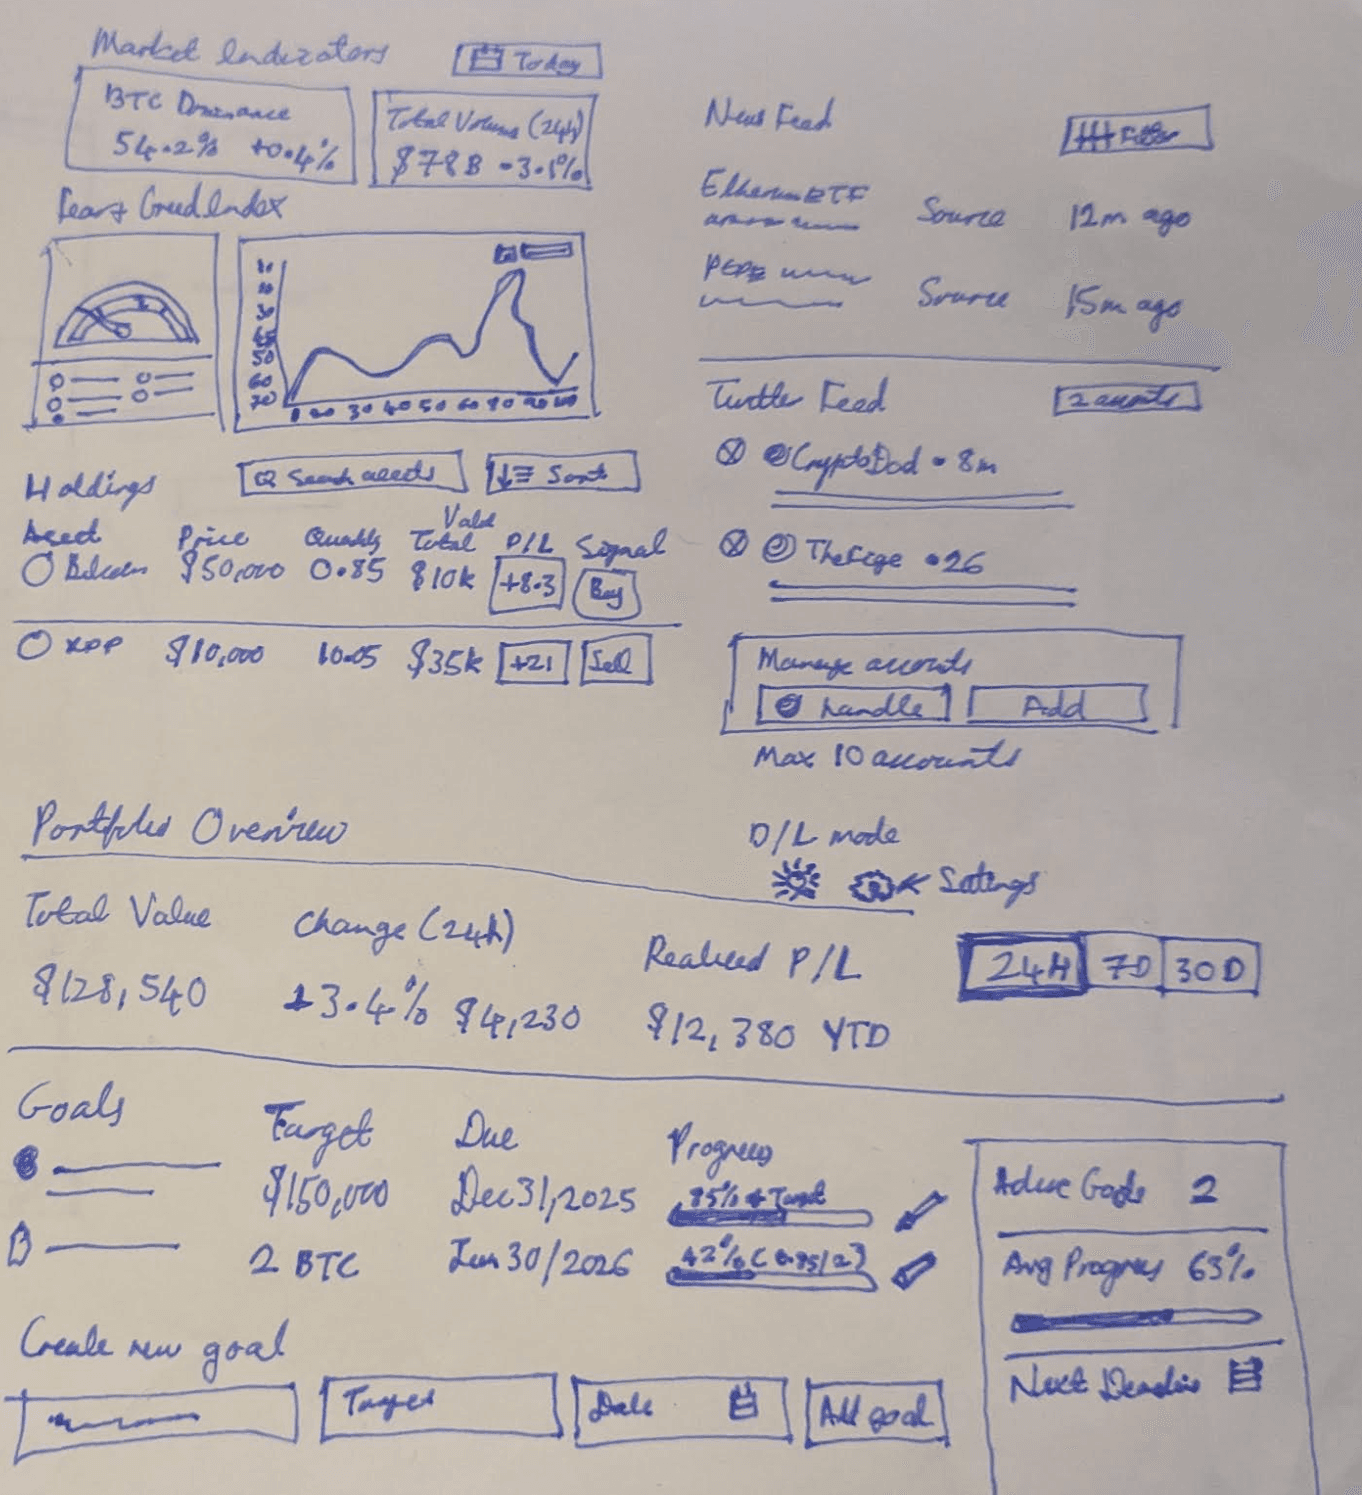 Market Indicators
Today
BTC Dominance
54.2% +0.4%
Total Volume (24h)
$78B -3.1%
Fear & Greed Index
50
60
70
20 30 40 50 60 80 90 100
Holdings
Search assets
Sort
Asset Price Quantity Total Value P/L Signal
Bitcoin $50,000 0.85 $10k +8.3 Buy
XRP $10,000 10.05 $35k +21 Sell
News Feed
Filter
Ethereum ETF
Source 12m ago
PEPE
Source 15m ago
Twitter Feed
2 accounts
CryptoDad • 8m
• 26
Manage accounts
handle Add
Max 10 accounts
Portfolio Overview
D/L mode
Settings
Total Value Change (24h) Realised P/L
24H 7D 30D
$128,540 +3.4% $4,230 $12,380 YTD
Goals Target Due Progress
$150,000 Dec 31, 2025 85% of Target
2 BTC Jun 30/2026 42% (0.85/2)
Create new goal
Target
Date
Add goal
Active Goals 2
Avg Progress 63%
Next Deadline